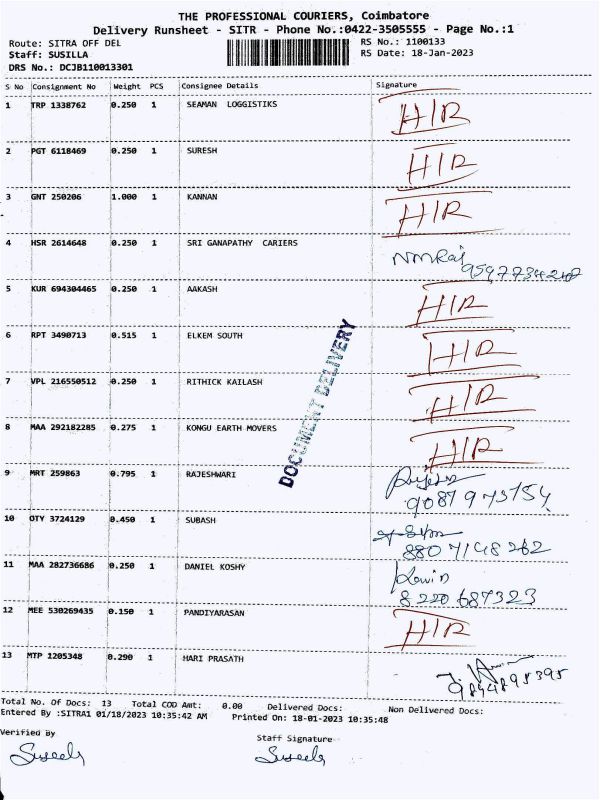 THE PROFESSIONAL COURIERS, Coimbatore
Delivery Runsheet - SITR - Phone No.:0422-3505555 - Page No.:1
Route: SITRA OFF DEL RS No.: 1100133
Staff: SUSILLA RS Date: 18-Jan-2023
DRS No.: DCJB110013301
S No Consignment No Weight PCS Consignee Details Signature
1 TRP 1338762 0.250 1 SEAMAN LOGGISTIKS H/R
2 PGT 6118469 0.250 1 SURESH H/R
3 GNT 250206 1.000 1 KANNAN H/R
4 HSR 2614648 0.250 1 SRI GANAPATHY CARIERS NMRaj
5 KUR 694304465 0.250 1 AAKASH H/R
6 RPT 3490713 0.515 1 ELKEM SOUTH H/R
7 VPL 216550512 0.250 1 RITHICK KAILASH H/R
8 MAA 292182285 0.275 1 KONGU EARTH MOVERS H/R
DOCUMENT DELIVERY
9 MRT 259863 0.795 1 RAJESHWARI
9087973154
10 OTY 3724129 0.450 1 SUBASH
8807148262
11 MAA 282736686 0.250 1 DANIEL KOSHY
8220687323
12 MEE 530269435 0.150 1 PANDIYARASAN H/R
13 MTP 1205348 0.290 1 HARI PRASATH
9894895395
Total No. Of Docs: 13 Total COD Amt: 0.00 Delivered Docs: Non Delivered Docs:
Entered By :SITRA1 01/18/2023 10:35:42 AM Printed On: 18-01-2023 10:35:48
Verified By Staff Signature
Suseela Suseela